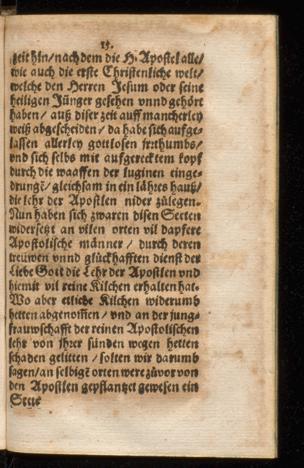 15.
zeit hin/nach dem die H. Apostel alle/
wie auch die erste Christenliche welt/
welche den Herren Jesum oder seine
heiligen Jünger gesehen vnnd gehört
haben/ auß diser zeit auff mancherley
weiß abgescheiden/ da habe sich aufge-
lassen allerley gottlosen jrrthumbs/
vnd sich selbs mit aufgerecktem kopf
durch die waaffen der luginen einge-
drungẽ/ gleichsam in ein lähres hauß/
die lehr der Apostlen nider zůlegen.
Nun haben sich zwaren disen Secten
widersetzt an vilen orten vil dapfere
Apostolische männer/ durch deren
treuwen vnnd glückhafften dienst der
Liebe Gott die Lehr der Apostlen vnd
hiemit vil reine Kilchen erhalten hat.
Wo aber etliche Kilchen widerumb
hetten abgenom̃en/ vnd an der jung-
frauwschafft der reinen Apostolischen
lehr von jhrer sünden wegen hetten
schaden gelitten/ solten wir darumb
sagen/an selbigẽ orten were zůvor von
den Apostlen gepflantzet gewesen ein